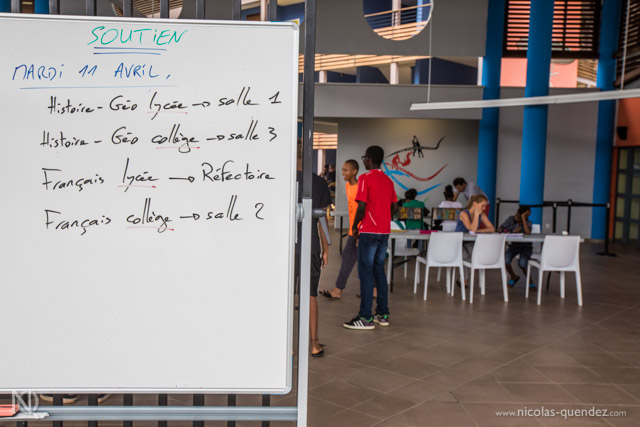 SOUTIEN
MARDI 11 AVRIL.
Histoire-Géo lycée → salle 1
Histoire-Géo collège → salle 3
Français lycée → Réfectoire
Français collège → salle 2
www.nicolas-quendez.com